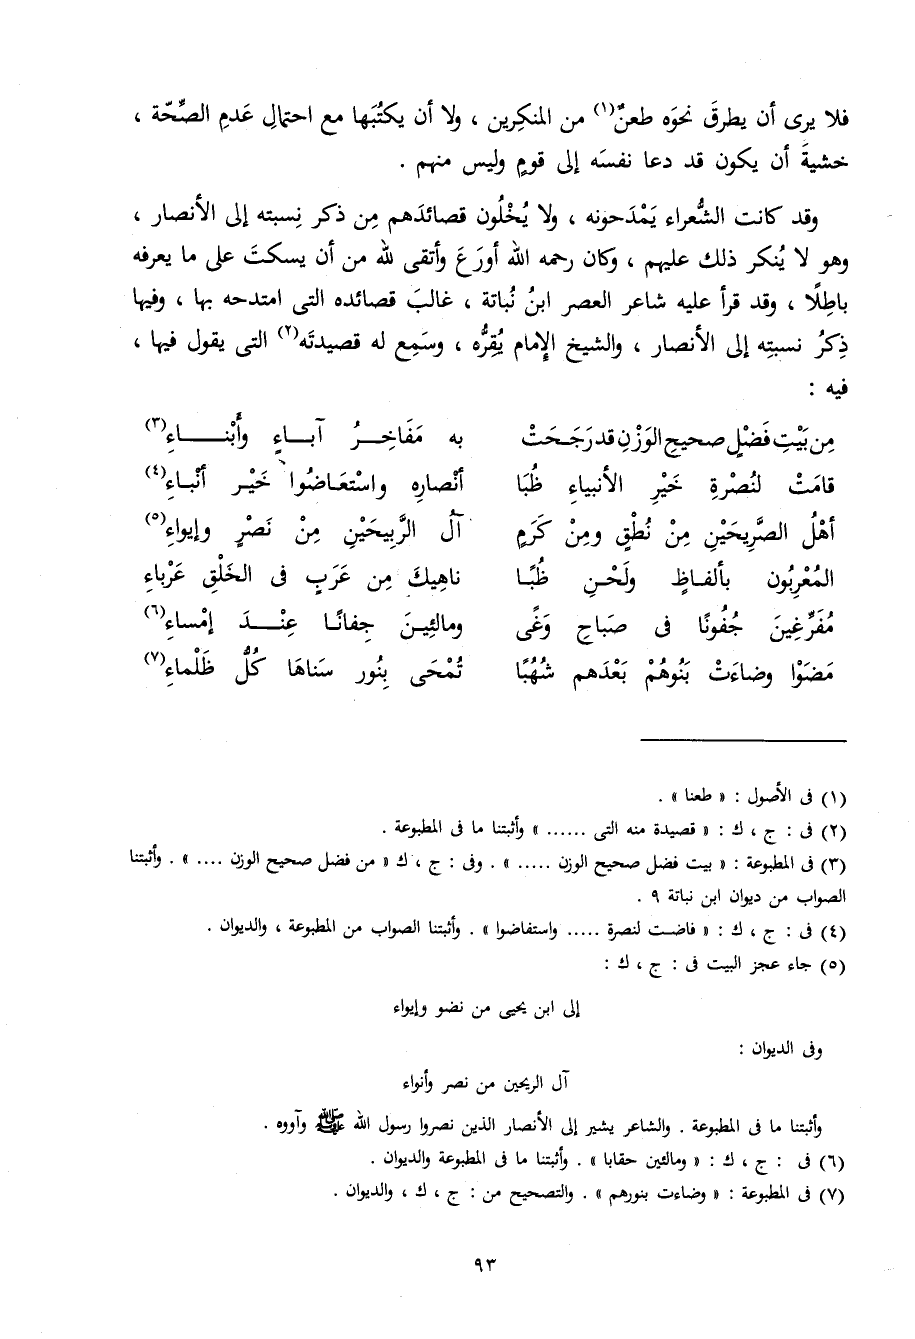 فلا يرى أن يطرقَ نحوَه طعنٌ(١) من المنكِرين ، ولا أن يكتُبَها مع احتمالِ عَدمِ الصِّحّة ،
خشيةَ أن يكون قد دعا نفسَه إلى قومٍ وليس منهم .
وقد كانت الشُّعراء يَمْدَحونه ، ولا يُخْلُون قصائدَهم مِن ذكر نِسبته إلى الأنصار ،
وهو لا يُنكر ذلك عليهم ، وكان رحمه الله أورَعَ وأتقى لله من أن يسكتَ على ما يعرفه
باطِلًا ، وقد قرأ عليه شاعر العصر ابنُ نُباتة ، غالبَ قصائده التى امتدحه بها ، وفيها
ذِكرُ نسبتِه إلى الأنصار ، والشيخ الإمام يُقِرُّه ، وسَمِع له قصيدتَه(٢) التى يقول فيها ،
فيه :
مِن بَيْتِ فَضْلٍ صحيحِ الوَزْنِ قد رَجَحَتْ به مَفَاخِـرُ آبـاءٍ وأَبْنـــاءِ(٣)
قامَتْ لنُصْرةِ خَيْرِ الأنبياءِ ظُبَا أنْصارِه واستْعَاضُوا خَيْـر أنْباءِ(٤)
أهْلُ الصَّرِيحَيْنِ مِنْ نُطْقٍ ومِنْ كَرَمٍ آلُ الرَّبِيحَيْنِ مِنْ نَصْرٍ وإيواءِ(٥)
المُعْرِبُون بألفاظٍ ولَحْـنِ ظُبًـا ناهِيكَ مِن عَرَبٍ فى الخَلْقِ عَرْباءِ
مُفَرِّغِينَ جُفُونًا فى صَباحِ وَغًى ومالئِينَ جِفانًـا عِنْــدَ إمْساءِ(٦)
مَضَوْا وضاءَتْ بَنُوهُمْ بَعْدَهم شُهُبًا تُمْحَى بِنُور سَناهَا كُلُّ ظَلْماءِ(٧)
(١) فى الأصول : « طعنا » .
(٢) فى : ج ، ك : « قصيدة منه التى ...... » وأثبتنا ما فى المطبوعة .
(٣) فى المطبوعة : « بيت فضل صحيح الوزن ..... » . وفى : ج ، ك « من فضل صحيح الوزن .... » . وأثبتنا
الصواب من ديوان ابن نباتة ٩ .
(٤) فى : ج ، ك : « فاضت لنصرة ..... واستفاضوا » . وأثبتنا الصواب من المطبوعة ، والديوان .
(٥) جاء عجز البيت فى : ج ، ك :
إلى ابن يحيى من نضو وإيواء
وفى الديوان :
آل الريحين من نصر وأنواء
وأثبتنا ما فى المطبوعة . والشاعر يشير إلى الأنصار الذين نصروا رسول الله ﷺ وآووه .
(٦) فى : ج ، ك : « ومالئين حقابا » . وأثبتنا ما فى المطبوعة والديوان .
(٧) فى المطبوعة : « وضاءت بنورهم » . والتصحيح من : ج ، ك ، والديوان .
٩٣